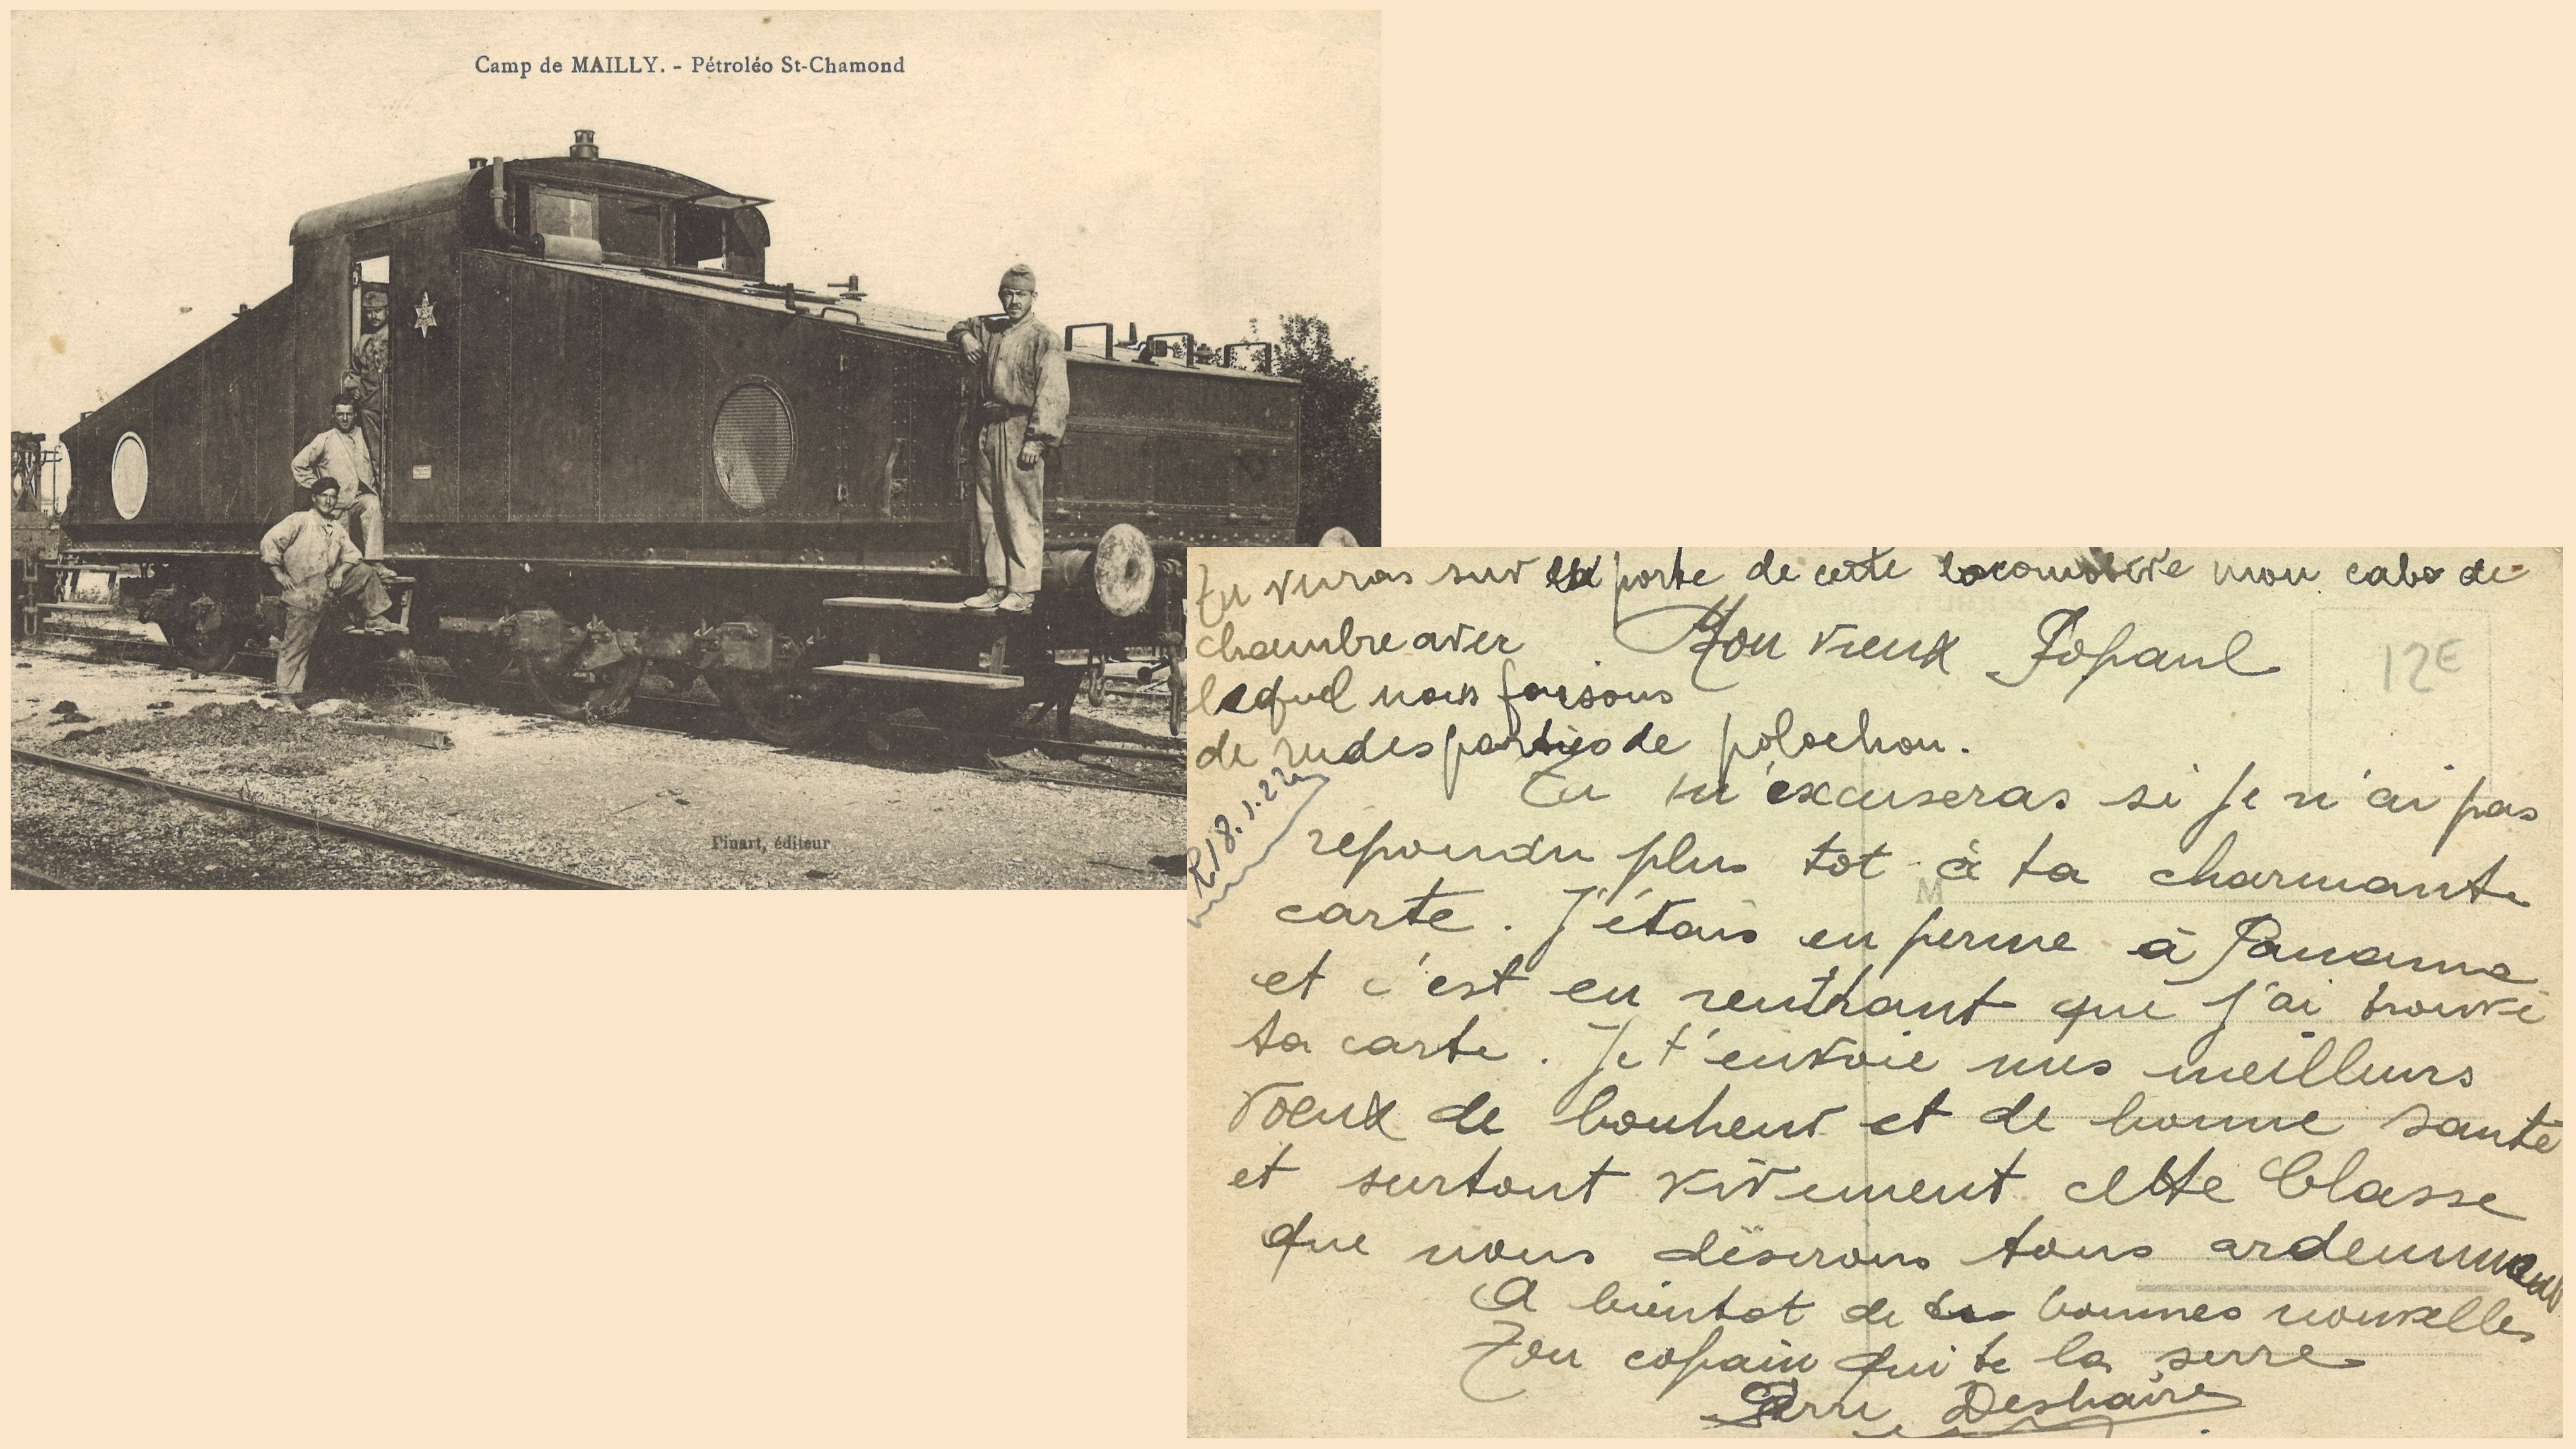 Camp de MAILLY. - Pétroléo St-Chamond
Pinart, éditeur
Tu verras sur la porte de cette locomotive mon cabo de
chambre avec
lequel nous faisons
de rudes parties de polochon.
Mon vieux Popaul
12E
R 18.1.22
Tu m'excuseras si je n'ai pas
répondu plus tot à ta charmante
M
carte. J'étais en perme à Paname
et c'est en rentrant que j'ai trouvé
ta carte. Je t'envoie mes meilleurs
voeux de bonheur et de bonne santé
et surtout vivement cette Classe
que nous désirons tous ardemment
A bientot de tes bonnes nouvelles
Ton copain qui te la serre
Pierre Deshaires